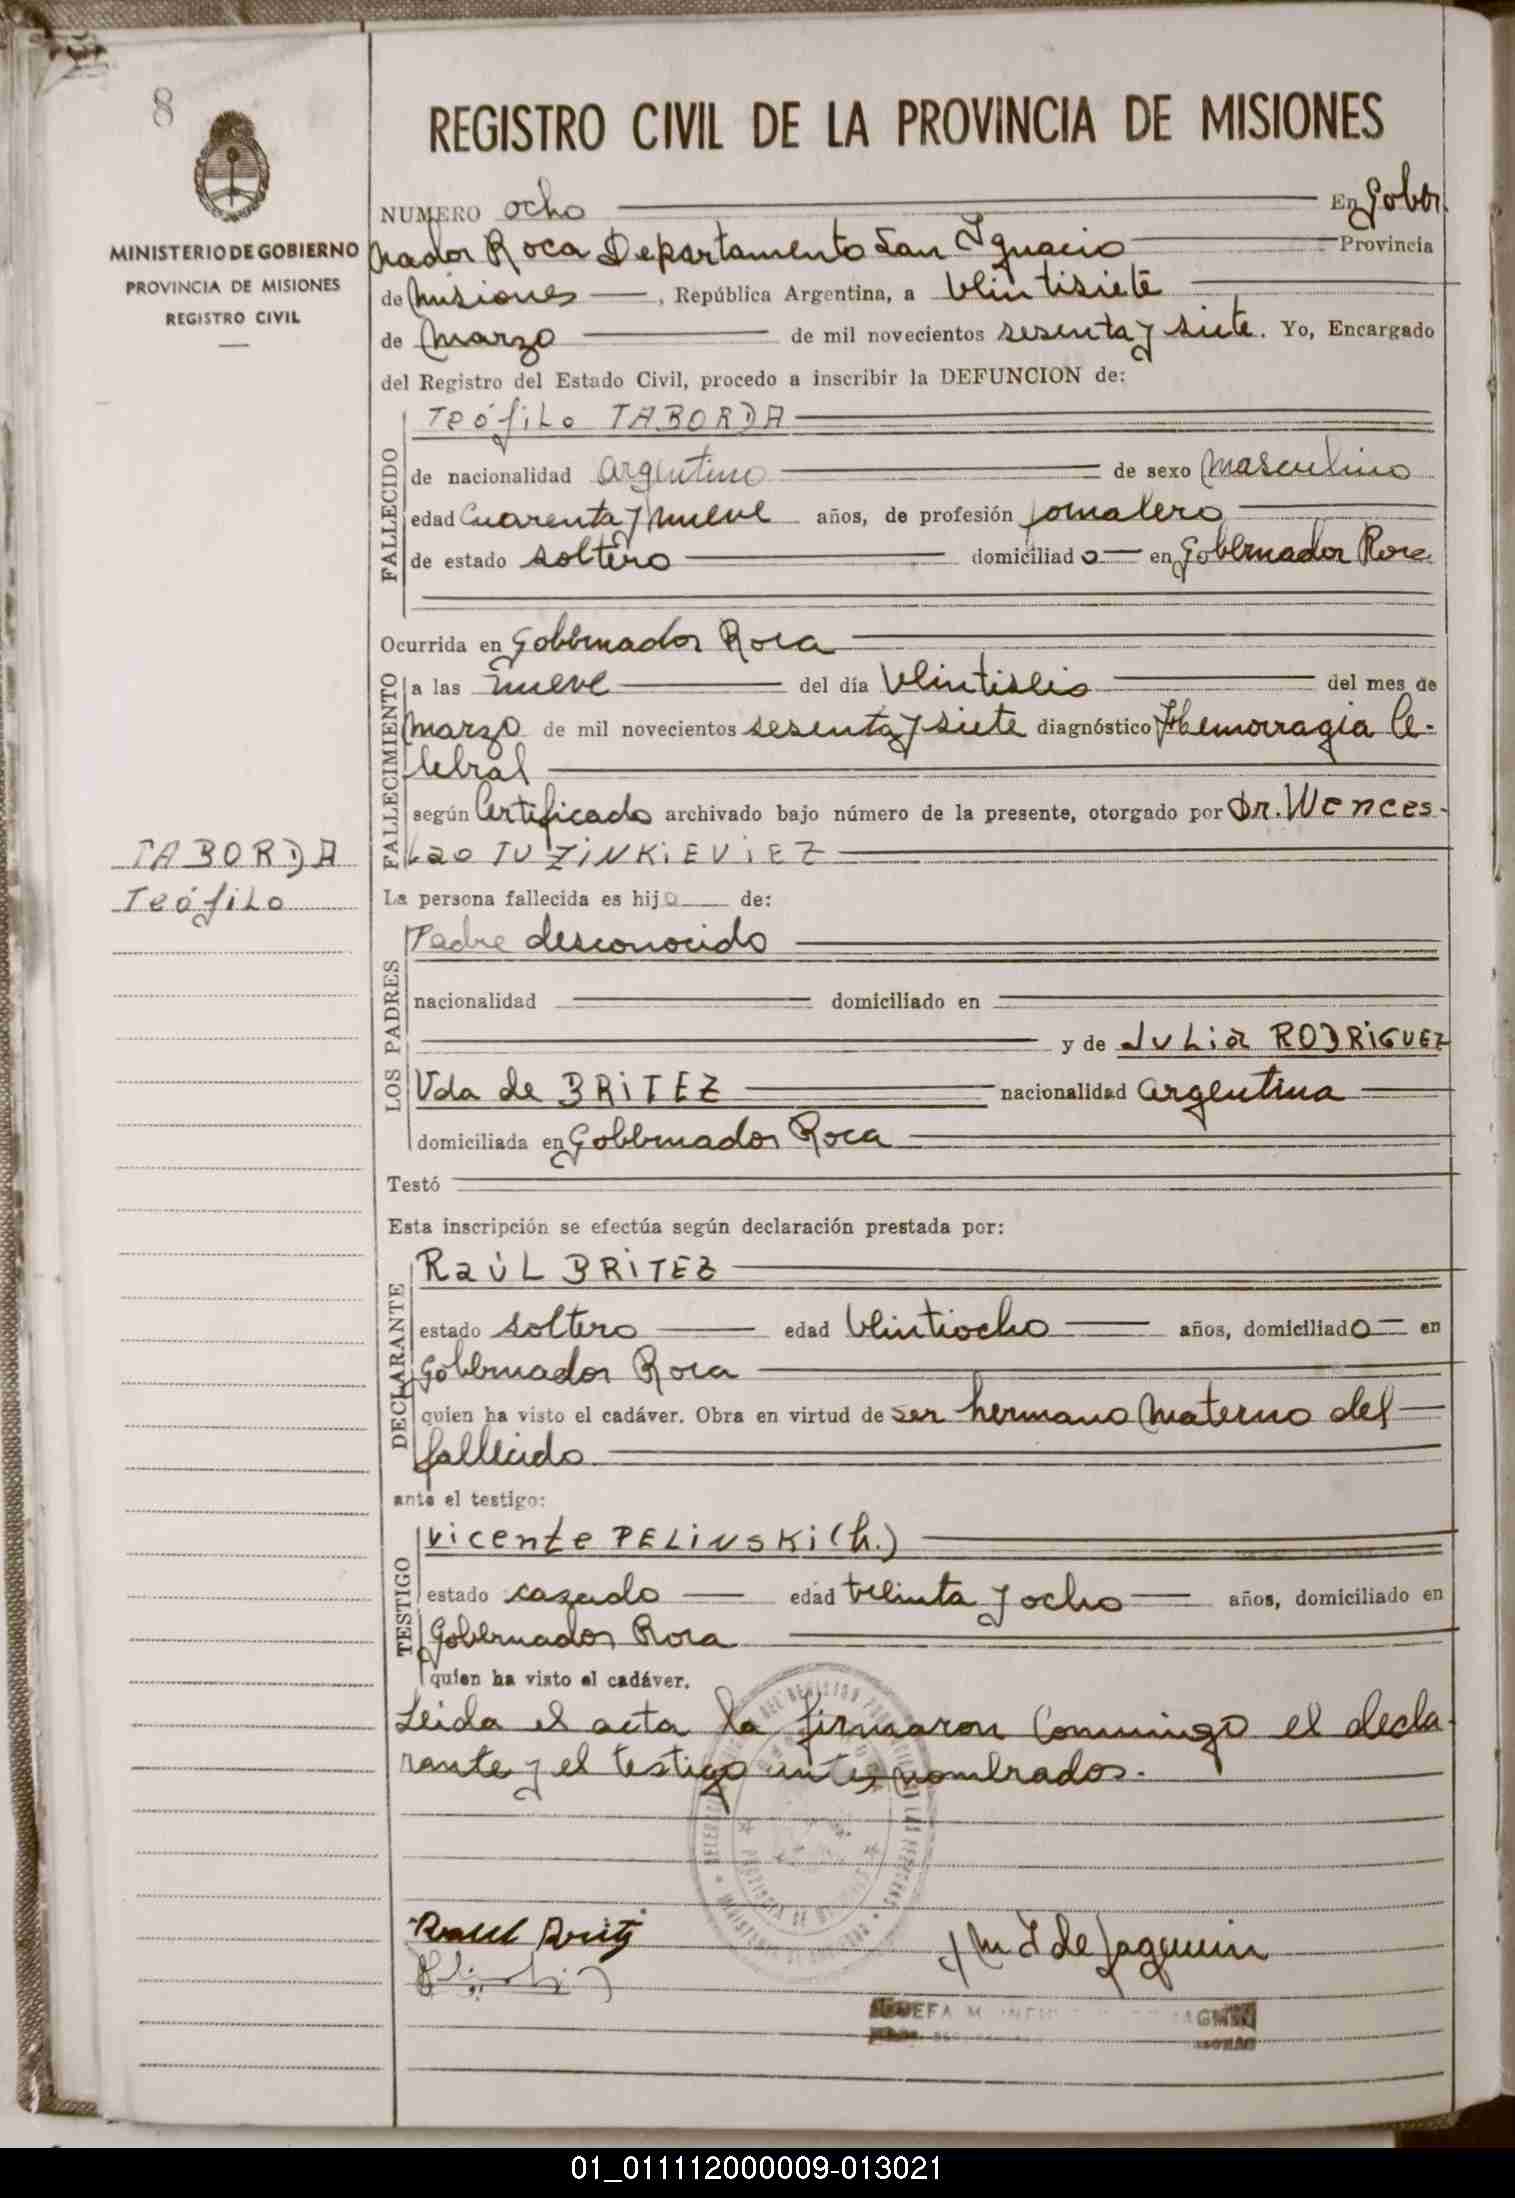 8
MINISTERIO DE GOBIERNO
PROVINCIA DE MISIONES
REGISTRO CIVIL
TABORDA
Teófilo
REGISTRO CIVIL DE LA PROVINCIA DE MISIONES
NUMERO ocho En Gober
nador Roca Departamento San Ignacio Provincia
de Misiones, República Argentina, a Veintisiete
de Marzo de mil novecientos sesenta y siete. Yo, Encargado
del Registro del Estado Civil, procedo a inscribir la DEFUNCION de:
FALLECIDO
Teófilo TABORDA
de nacionalidad argentino de sexo Masculino
edad Cuarenta y nueve años, de profesión jornalero
de estado soltero domiciliado en Gobernador Roca
Ocurrida en Gobernador Roca
FALLECIMIENTO
a las nueve del día Veintiseis del mes de
Marzo de mil novecientos sesenta y siete diagnóstico Hemorragia Ce-
rebral
según Certificado archivado bajo número de la presente, otorgado por Dr. Wences-
lao TUZINKIEVIEZ
La persona fallecida es hijo de:
LOS PADRES
Padre desconocido
nacionalidad domiciliado en
y de Julia RODRIGUEZ
Vda de BRITEZ nacionalidad argentina
domiciliada en Gobernador Roca
Testó
Esta inscripción se efectúa según declaración prestada por:
DECLARANTE
Raúl BRITEZ
estado soltero edad Veintiocho años, domiciliado en
Gobernador Roca
quien ha visto el cadáver. Obra en virtud de ser hermano Materno del
fallecido
ante el testigo:
TESTIGO
Vicente PELINSKI (h.)
estado casado edad treinta y ocho años, domiciliado en
Gobernador Roca
quien ha visto el cadáver.
Leida el acta la firmaron Conmingo el decla-
rante y el testigo antes nombrados.
PROVINCIA DE MISIONES
Raul Britz
M I de Jaquemin
01_011112000009-013021